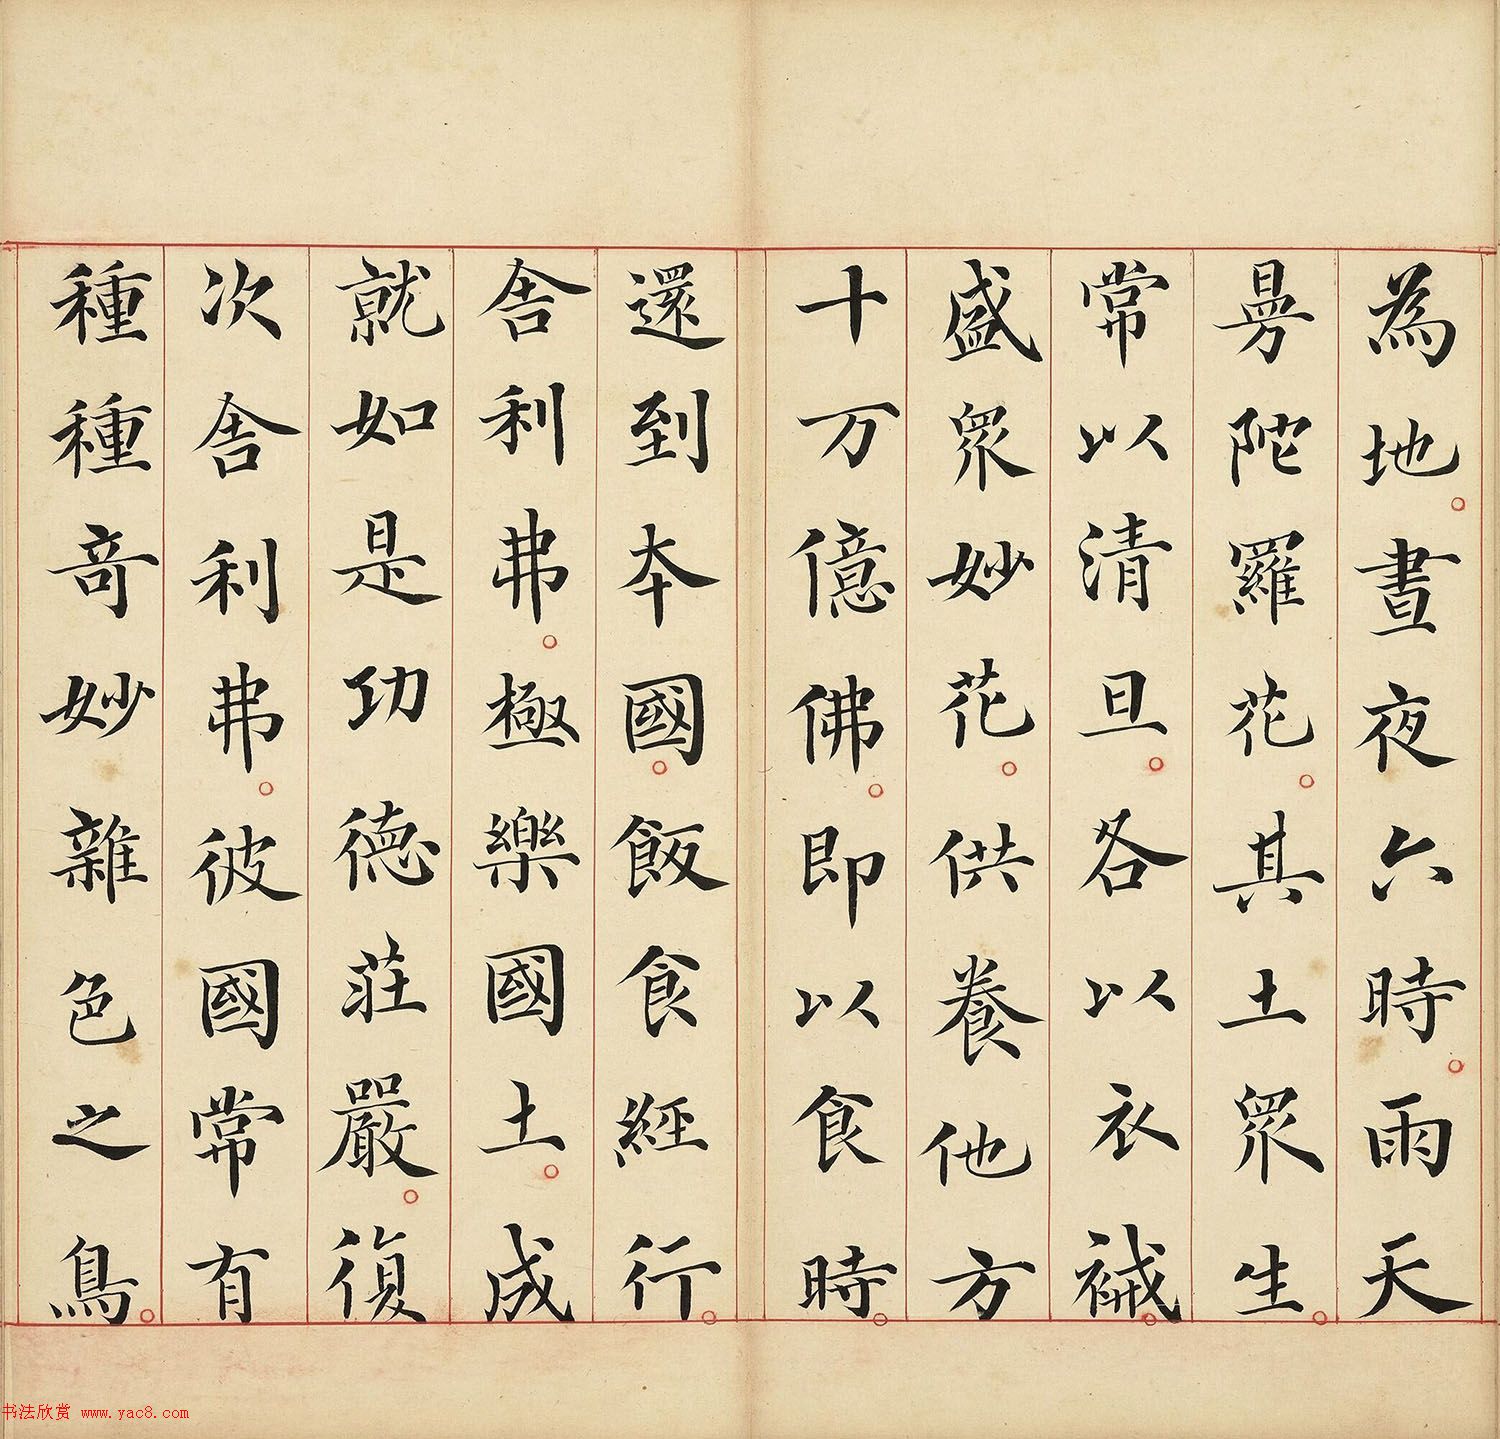 為地。晝夜六時。雨天
曼陀羅花。其土眾生。
常以清旦。各以衣祴。
盛眾妙花。供養他方
十万億佛。即以食時。
還到本國。飯食經行。
舍利弗。極樂國土。成
就如是功德莊嚴。復
次舍利弗。彼國常有
種種奇妙雜色之鳥。
书法欣赏 www.yac8.com